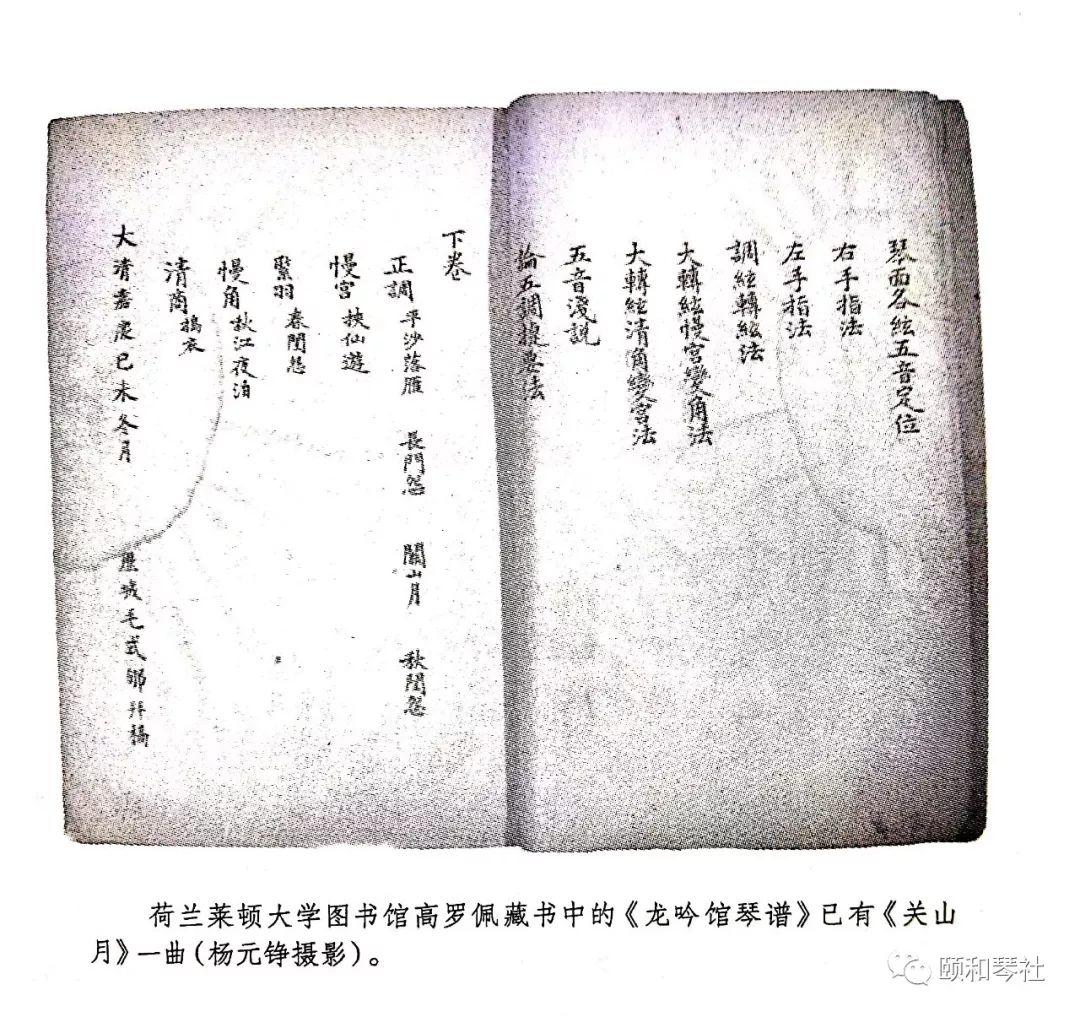 琴面各絃五音定位
右手指法
左手指法
調絃轉絃法
大轉絃慢宮變角法
大轉絃清角變宮法
五音淺説
論五調捷要法
下卷
正調 平沙落雁 長門怨 關山月 秋閨怨
慢宮 挾仙遊
緊羽 春閨怨
慢角 秋江夜泊
清商 搗衣
大清嘉慶己未冬月 歷城毛式郇拜稿
荷兰莱顿大学图书馆高罗佩藏书中的《龙吟馆琴谱》已有《关山
月》一曲(杨元铮摄影)。
颐和琴社